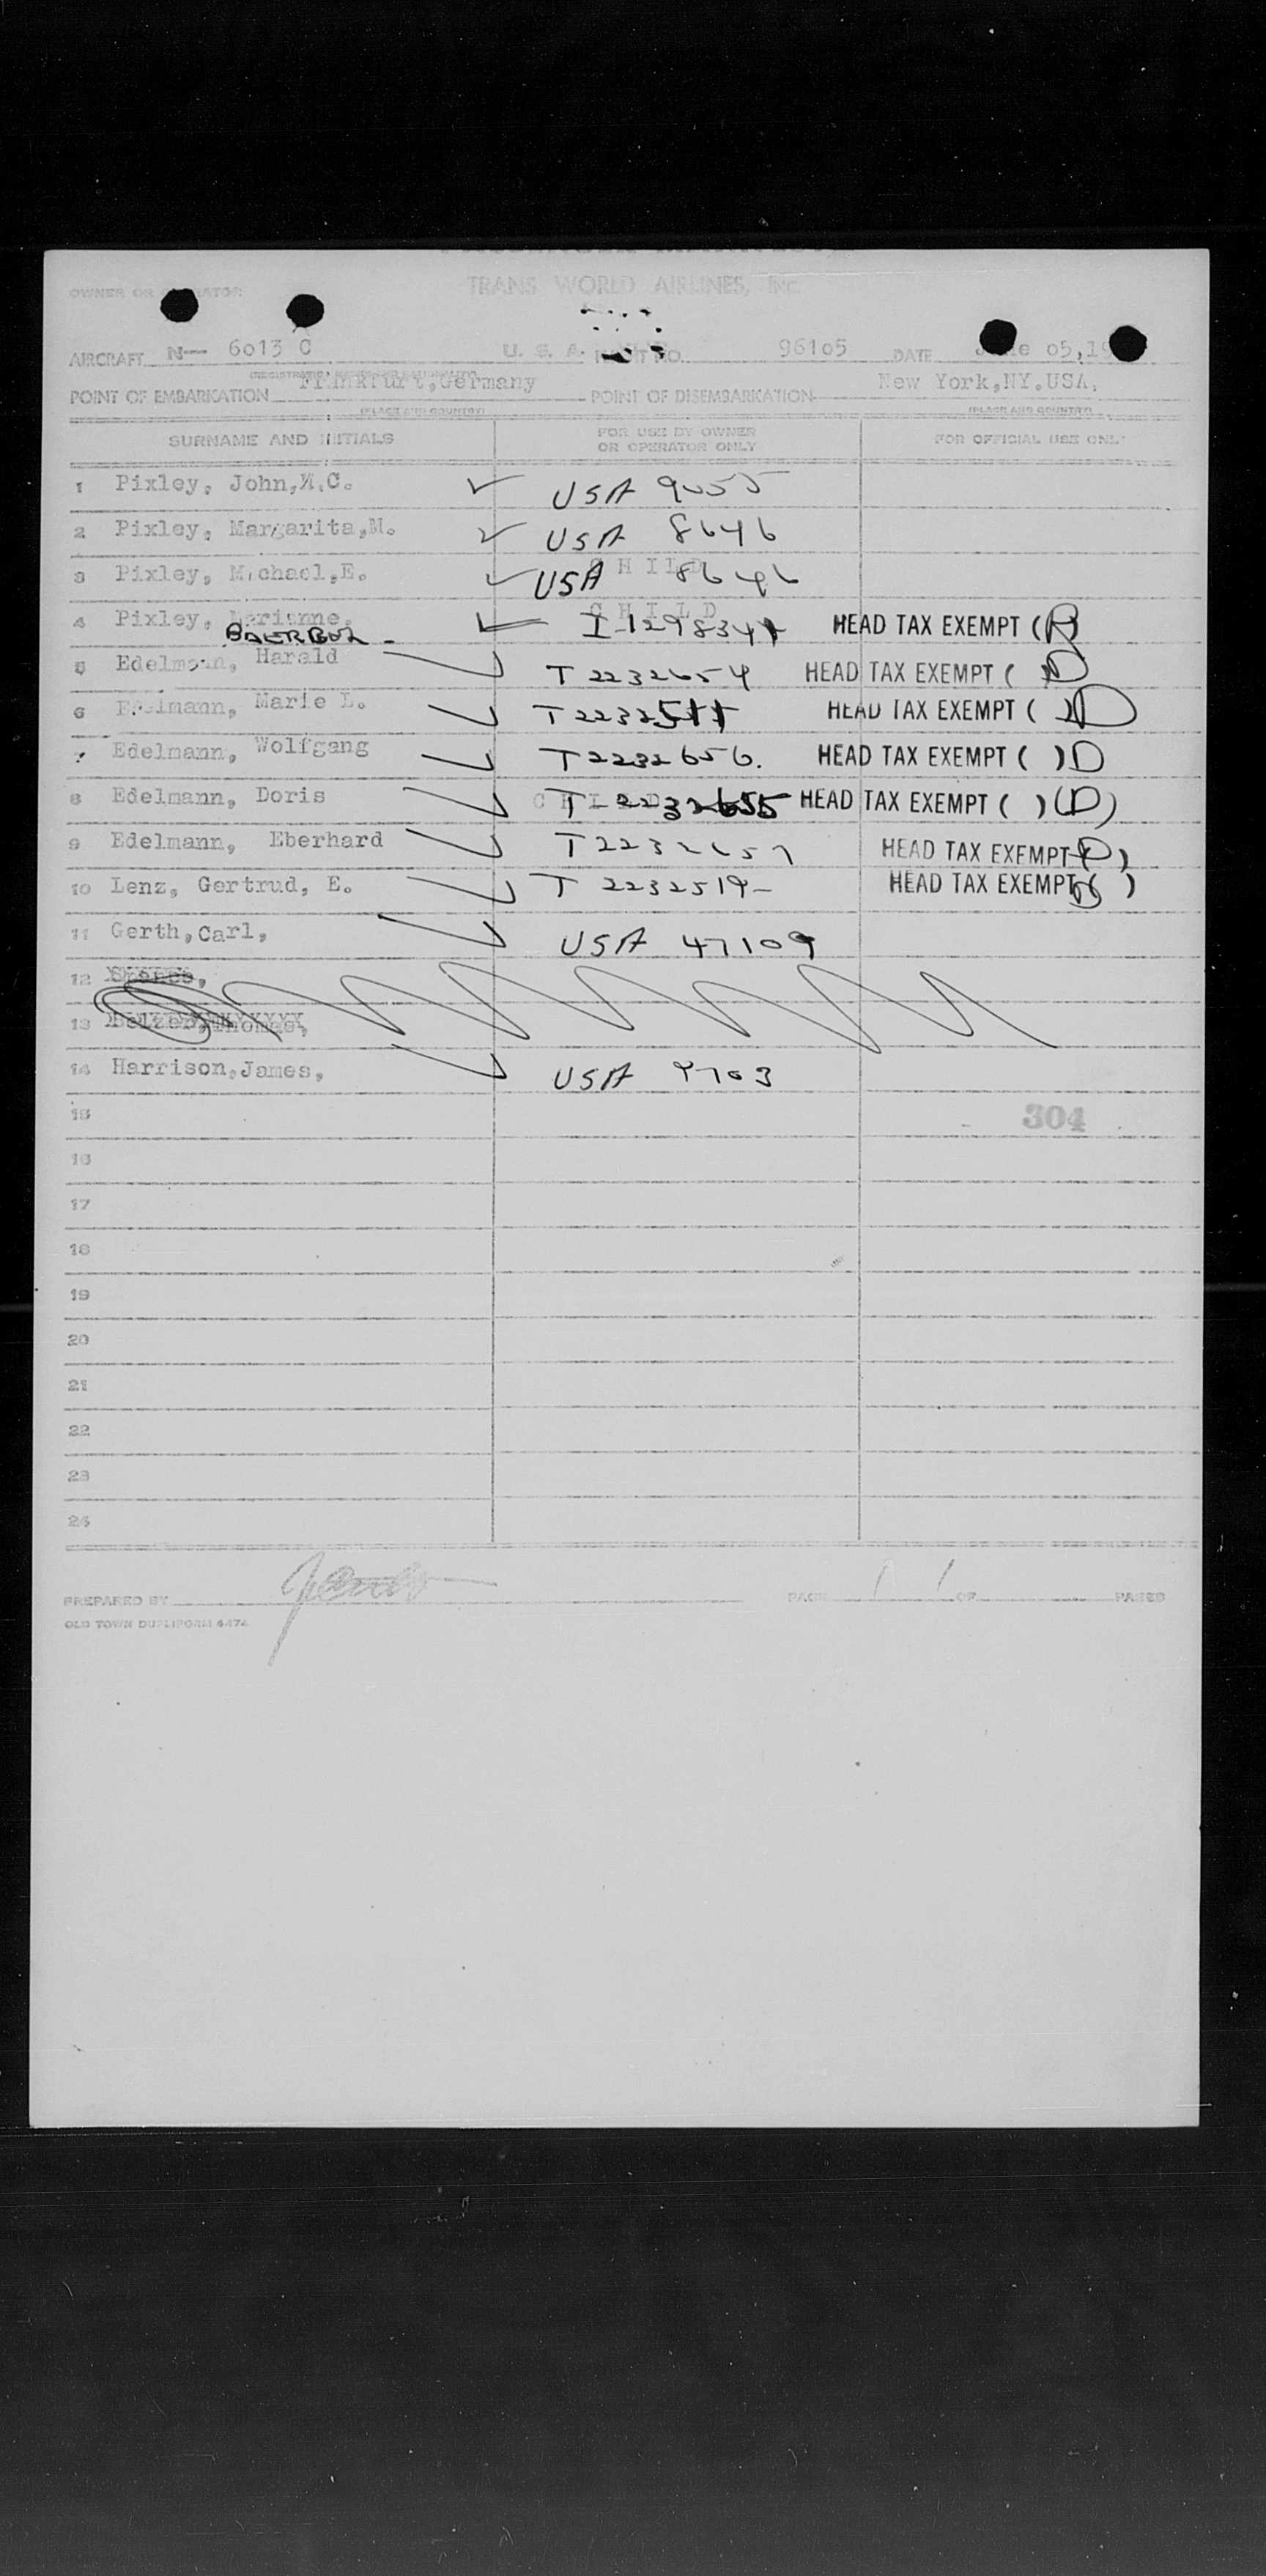 PASSENGER MANIFEST
TRANS WORLD AIRLINES, INC.
OWNER OR OPERATOR
AIRCRAFT N-- 6013 C U. S. A. 96105 DATE June 05,19
(REGISTRATION MARKS AND NATIONALITY)
POINT OF EMBARKATION Frankfurt,Germany POINT OF DISEMBARKATION New York,NY.USA.
(PLACE AND COUNTRY) (PLACE AND COUNTRY)
SURNAME AND INITIALS FOR USE BY OWNER OR OPERATOR ONLY FOR OFFICIAL USE ONLY
1 Pixley, John, C. USA 9055
2 Pixley, Margarita,M. USA 8646
3 Pixley, Michael,E. CHILD USA 8646
4 Pixley, Marianne. CHILD HEAD TAX EXEMPT (R)
5 Edelmann, Harald T 2232654 HEAD TAX EXEMPT ( )D
6 Edelmann, Marie L. HEAD TAX EXEMPT ( )D
7 Edelmann, Wolfgang T 2232656. HEAD TAX EXEMPT ( )D
8 Edelmann, Doris CHILD T 2232655 HEAD TAX EXEMPT ( ) (D)
9 Edelmann, Eberhard T 2232657 HEAD TAX EXEMPT (D)
10 Lenz, Gertrud, E. T 2232519 HEAD TAX EXEMPT ( )
11 Gerth,Carl, USA 47109
12
13 Thomas,
14 Harrison,James, USA 9703
15 304
16
17
18
19
20
21
22
23
24
PREPARED BY PAGE 1 OF 1 PAGES
OLD TOWN DUPLIFORM 4474